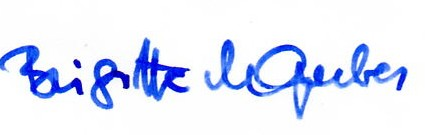 Brigitte M Gerber